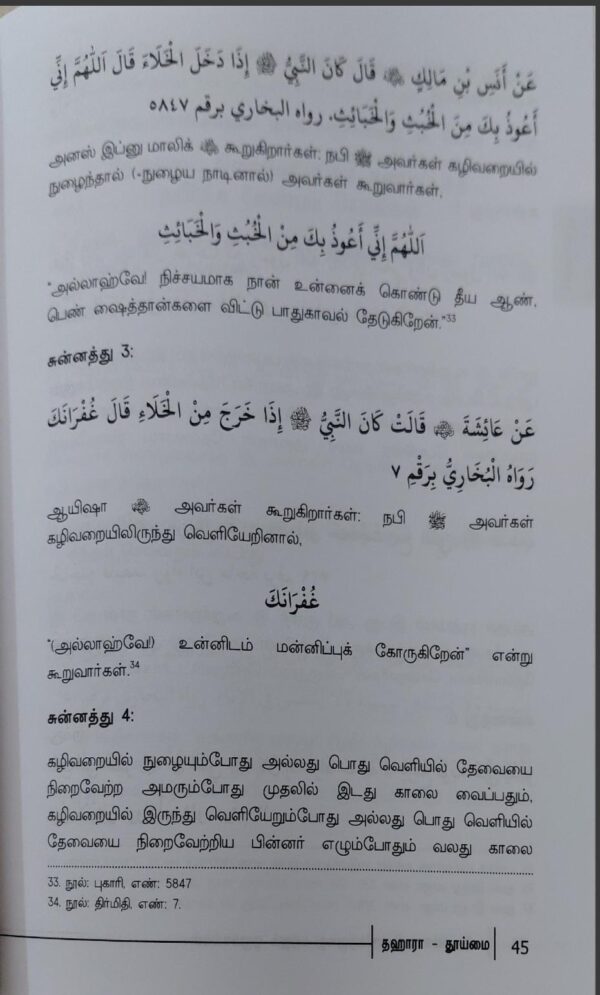 عَنْ أَنَسِ بْنِ مَالِكٍ ﷺ قَالَ كَانَ النَّبِيُّ ﷺ إِذَا دَخَلَ الْخَلَاءَ قَالَ اَللّٰهُمَّ إِنِّي
أَعُوذُ بِكَ مِنَ الْخُبُثِ وَالْخَبَائِثِ. رواه البخاري برقم ٥٨٤٧
அனஸ் இப்னு மாலிக் கூறுகிறார்கள்: நபி ﷺ அவர்கள் கழிவறையில்
நுழைந்தால் (-நுழைய நாடினால்) அவர்கள் கூறுவார்கள்,
اَللّٰهُمَّ إِنِّي أَعُوذُ بِكَ مِنْ الْخُبُثِ وَالْخَبَائِثِ
"அல்லாஹ்வே! நிச்சயமாக நான் உன்னைக் கொண்டு தீய ஆண்,
பெண் ஷைத்தான்களை விட்டு பாதுகாவல் தேடுகிறேன்."33
சுன்னத்து 3:
عَنْ عَائِشَةَ قَالَتْ كَانَ النَّبِيُّ ﷺ إِذَا خَرَجَ مِنْ الْخَلَاءِ قَالَ غُفْرَانَكَ
رَوَاهُ الْبُخَارِيُّ بِرَقْمِ ٧
ஆயிஷா அவர்கள் கூறுகிறார்கள்: நபி ﷺ அவர்கள்
கழிவறையிலிருந்து வெளியேறினால்,
غُفْرَانَكَ
"(அல்லாஹ்வே!) உன்னிடம் மன்னிப்புக் கோருகிறேன்" என்று
கூறுவார்கள்.34
சுன்னத்து 4:
கழிவறையில் நுழையும்போது அல்லது பொது வெளியில் தேவையை
நிறைவேற்ற அமரும்போது முதலில் இடது காலை வைப்பதும்,
கழிவறையில் இருந்து வெளியேறும்போது அல்லது பொது வெளியில்
தேவையை நிறைவேற்றிய பின்னர் எழும்போதும் வலது காலை
33. நூல்: புகாரி, எண்: 5847
34. நூல்: திர்மிதி, எண்: 7.
தஹாரா - தூய்மை 45